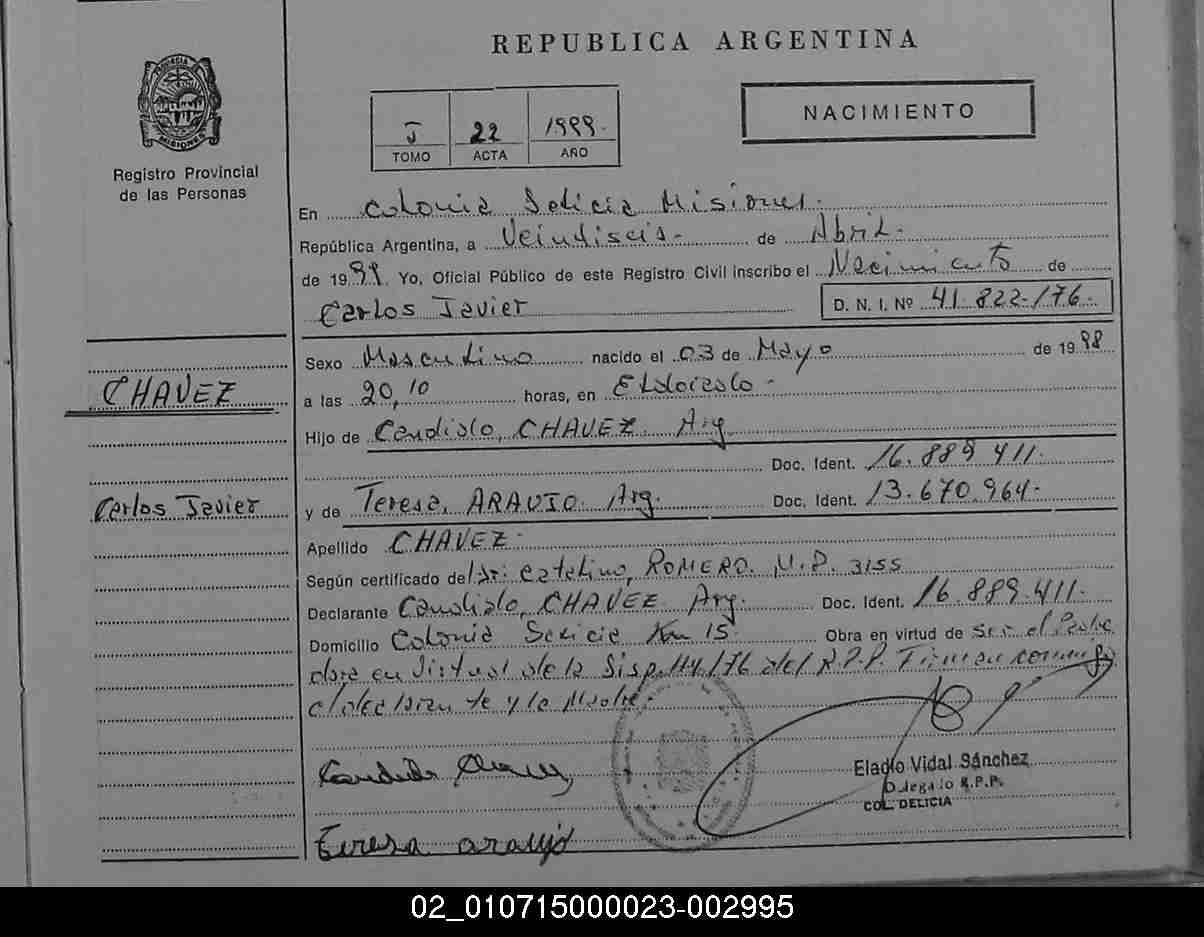 REPUBLICA ARGENTINA
PROVINCIA DE MISIONES
Registro Provincial
de las Personas
22 1999.
TOMO ACTA AÑO
NACIMIENTO
En Colonia Delicia Misiones.
República Argentina, a Veintiseis- de Abril-
de 1999. Yo, Oficial Público de este Registro Civil inscribo el Nacimiento de
Carlos Javier D. N. I. Nº 41.822.176.-
Sexo Masculino nacido el 03 de Mayo de 1998
CHAVEZ
a las 20,10 horas, en Eldorado-
Hijo de Candido, CHAVEZ. Arg
Doc. Ident. 16.889 411.
Carlos Javier
y de Teresa, ARAUJO. Arg. Doc. Ident. 13.670.964.-
Apellido CHAVEZ-
Según certificado del Dr: Catalino, ROMERO. M.P. 3155
Declarante Candido, CHAVEZ Arg. Doc. Ident. 16.889.411.-
Domicilio Colonia Delicia Km 15. Obra en virtud de ser el Padre
obra en virtud de la Disp. 114/76 del R.P.P. Firman conmigo
el declarante y la Madre.-
Candido Chavez
Eladio Vidal Sánchez
Delegado R.P.P.
COL. DELICIA
Teresa araujo
02_010715000023-002995